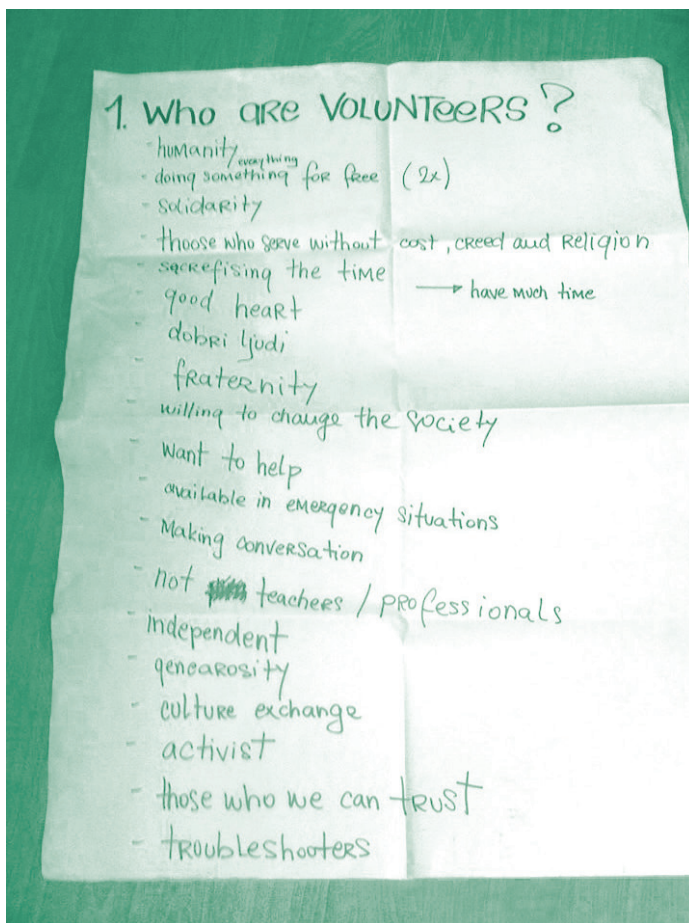 1. Who are VOLUNTeeRS?
- humanity
everything
- doing something for free (2x)
- solidarity
- thoose who serve without cost, creed and Religion
- sacrefising the time → have much time
- good heart
- dobri ljudi
- fraternity
- willing to change the society
- want to help
- available in emergency situations
- Making conversation
- not teachers / professionals
- independent
- genearosity
- culture exchange
- activist
- those who we can trust
- troubleshooters